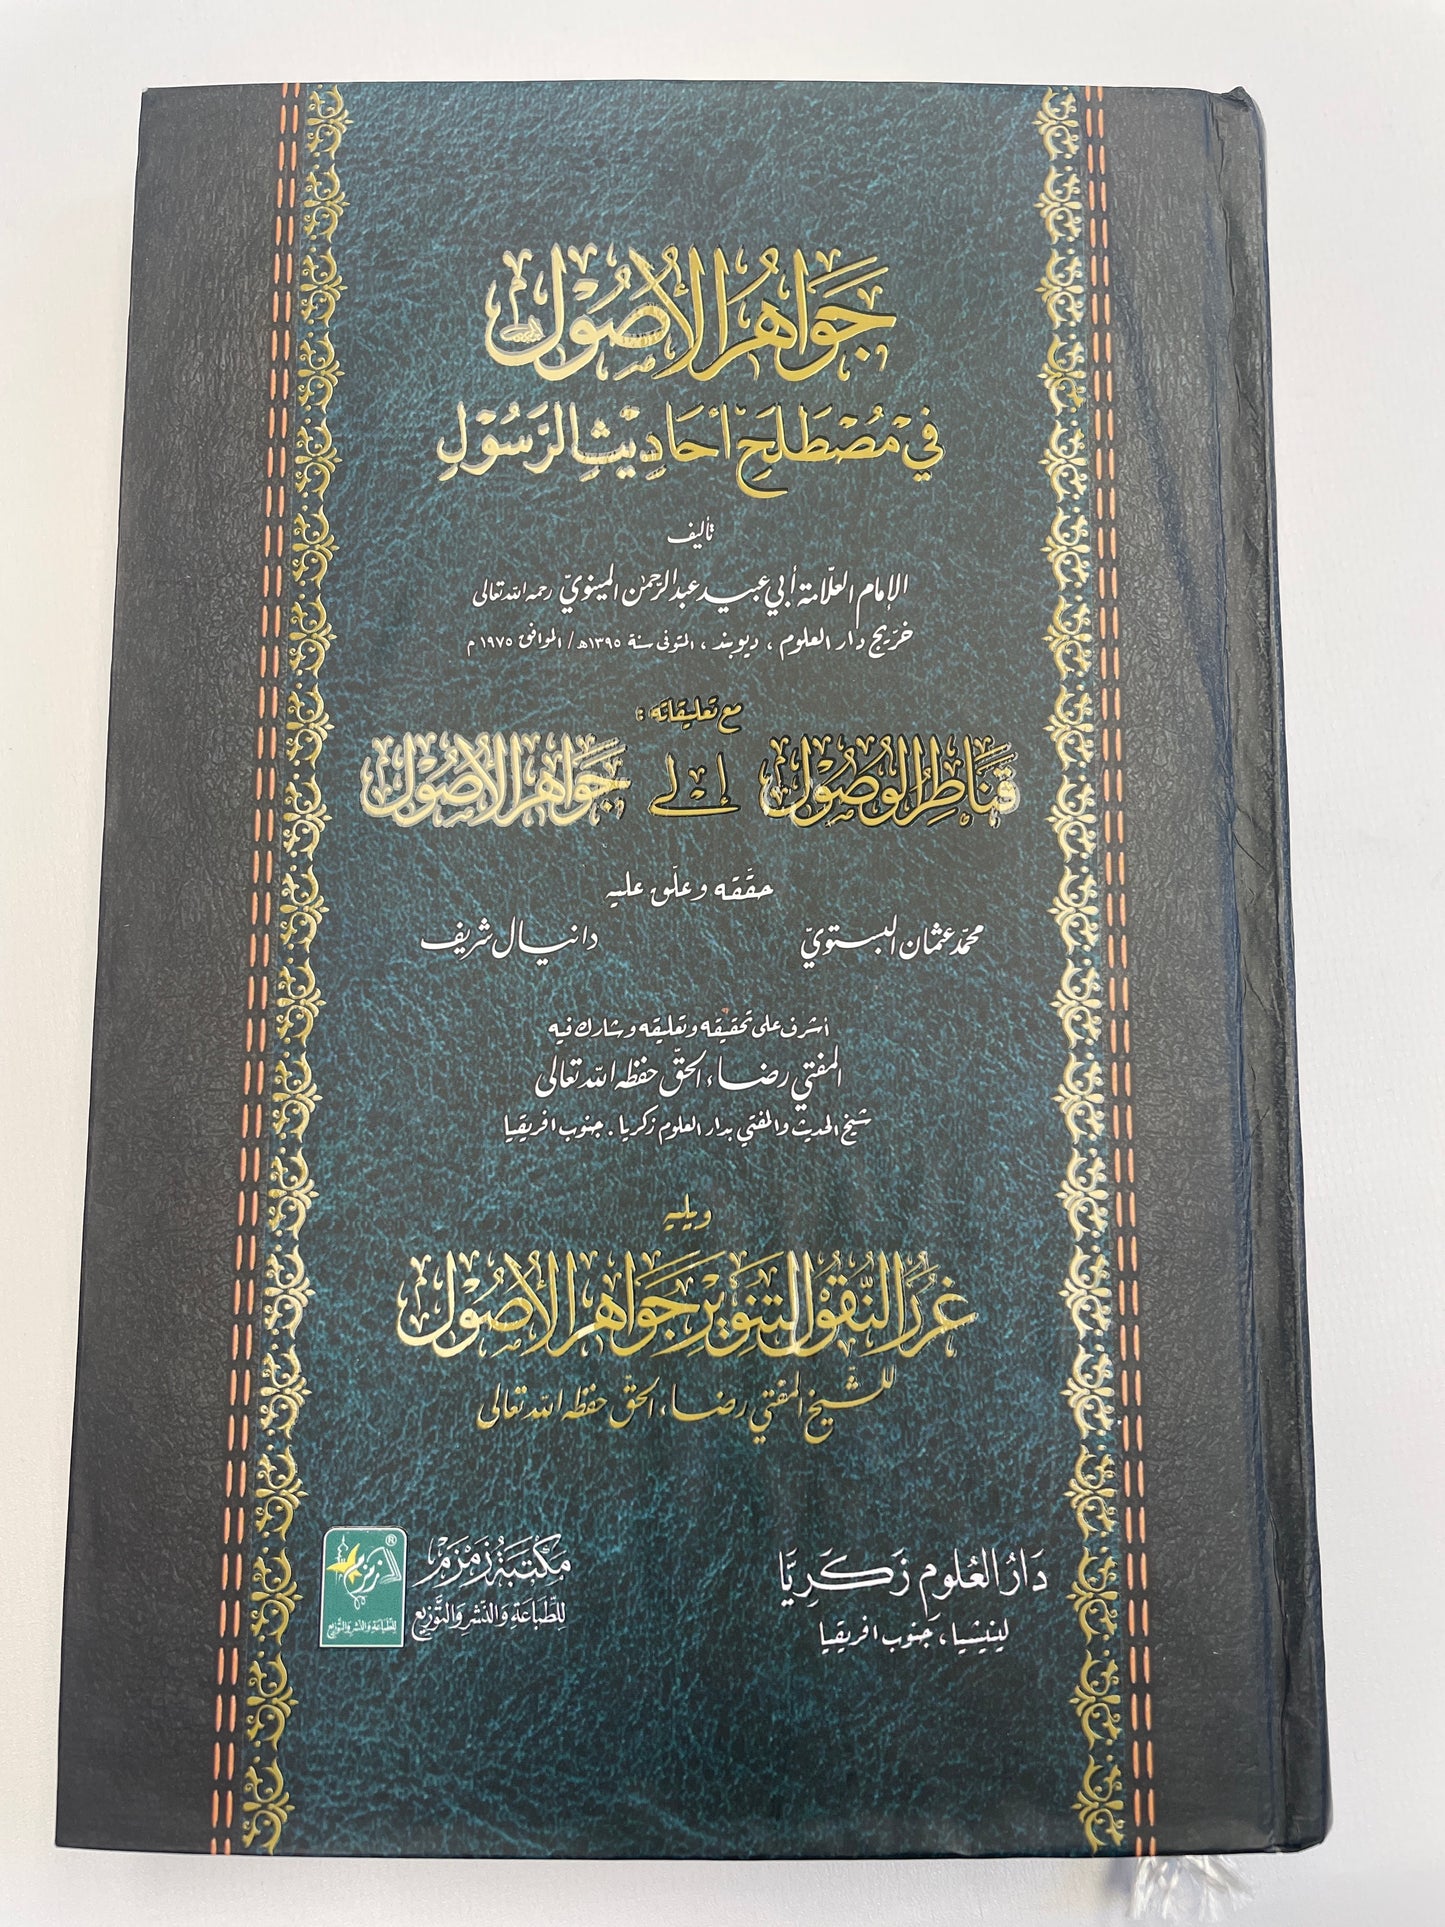 جَوَاهِرُ الْأُصُوْلِ
فِيْ مُصْطَلَحِ أَحَادِيْثِ الرَّسُوْلِ
تأليف
الإمام العلّامة أبي عبيد عبد الرحمٰن المينويّ رحمه الله تعالى
خرّيج دار العلوم ، ديوبند ، المتوفى سنة ١٣٩٥ھ/ الموافق ١٩٧٥ م
مع تعليقاته :
قَنَاطِرُ الْوُصُوْلِ إِلٰى جَوَاهِرِ الْأُصُوْلِ
حقّقه وعلّق عليه
محمّد عثمان البستويّ دانيال شريف
أشرف على تحقيقه وتعليقه وشارك فيه
المفتي رضاء الحقّ حفظه الله تعالى
شيخ الحديث والمفتي بدار العلوم زكريا . جنوب افريقيا
ويليه
غُرَرُ النُّقُوْلِ لِتَنْوِيْرِ جَوَاهِرِ الْأُصُوْلِ
للشيخ المفتي رضاء الحقّ حفظه الله تعالى
دَارُ العُلومِ زَكَرِيَّا
لينيشيا، جنوب افريقيا
مَكْتَبَةُ زَمْزَمْ
لِلطِّبَاعَةِ وَالنَّشْرِ وَالتَّوْزِيْع
زمزم ®
للطباعة والنشر والتوزيع